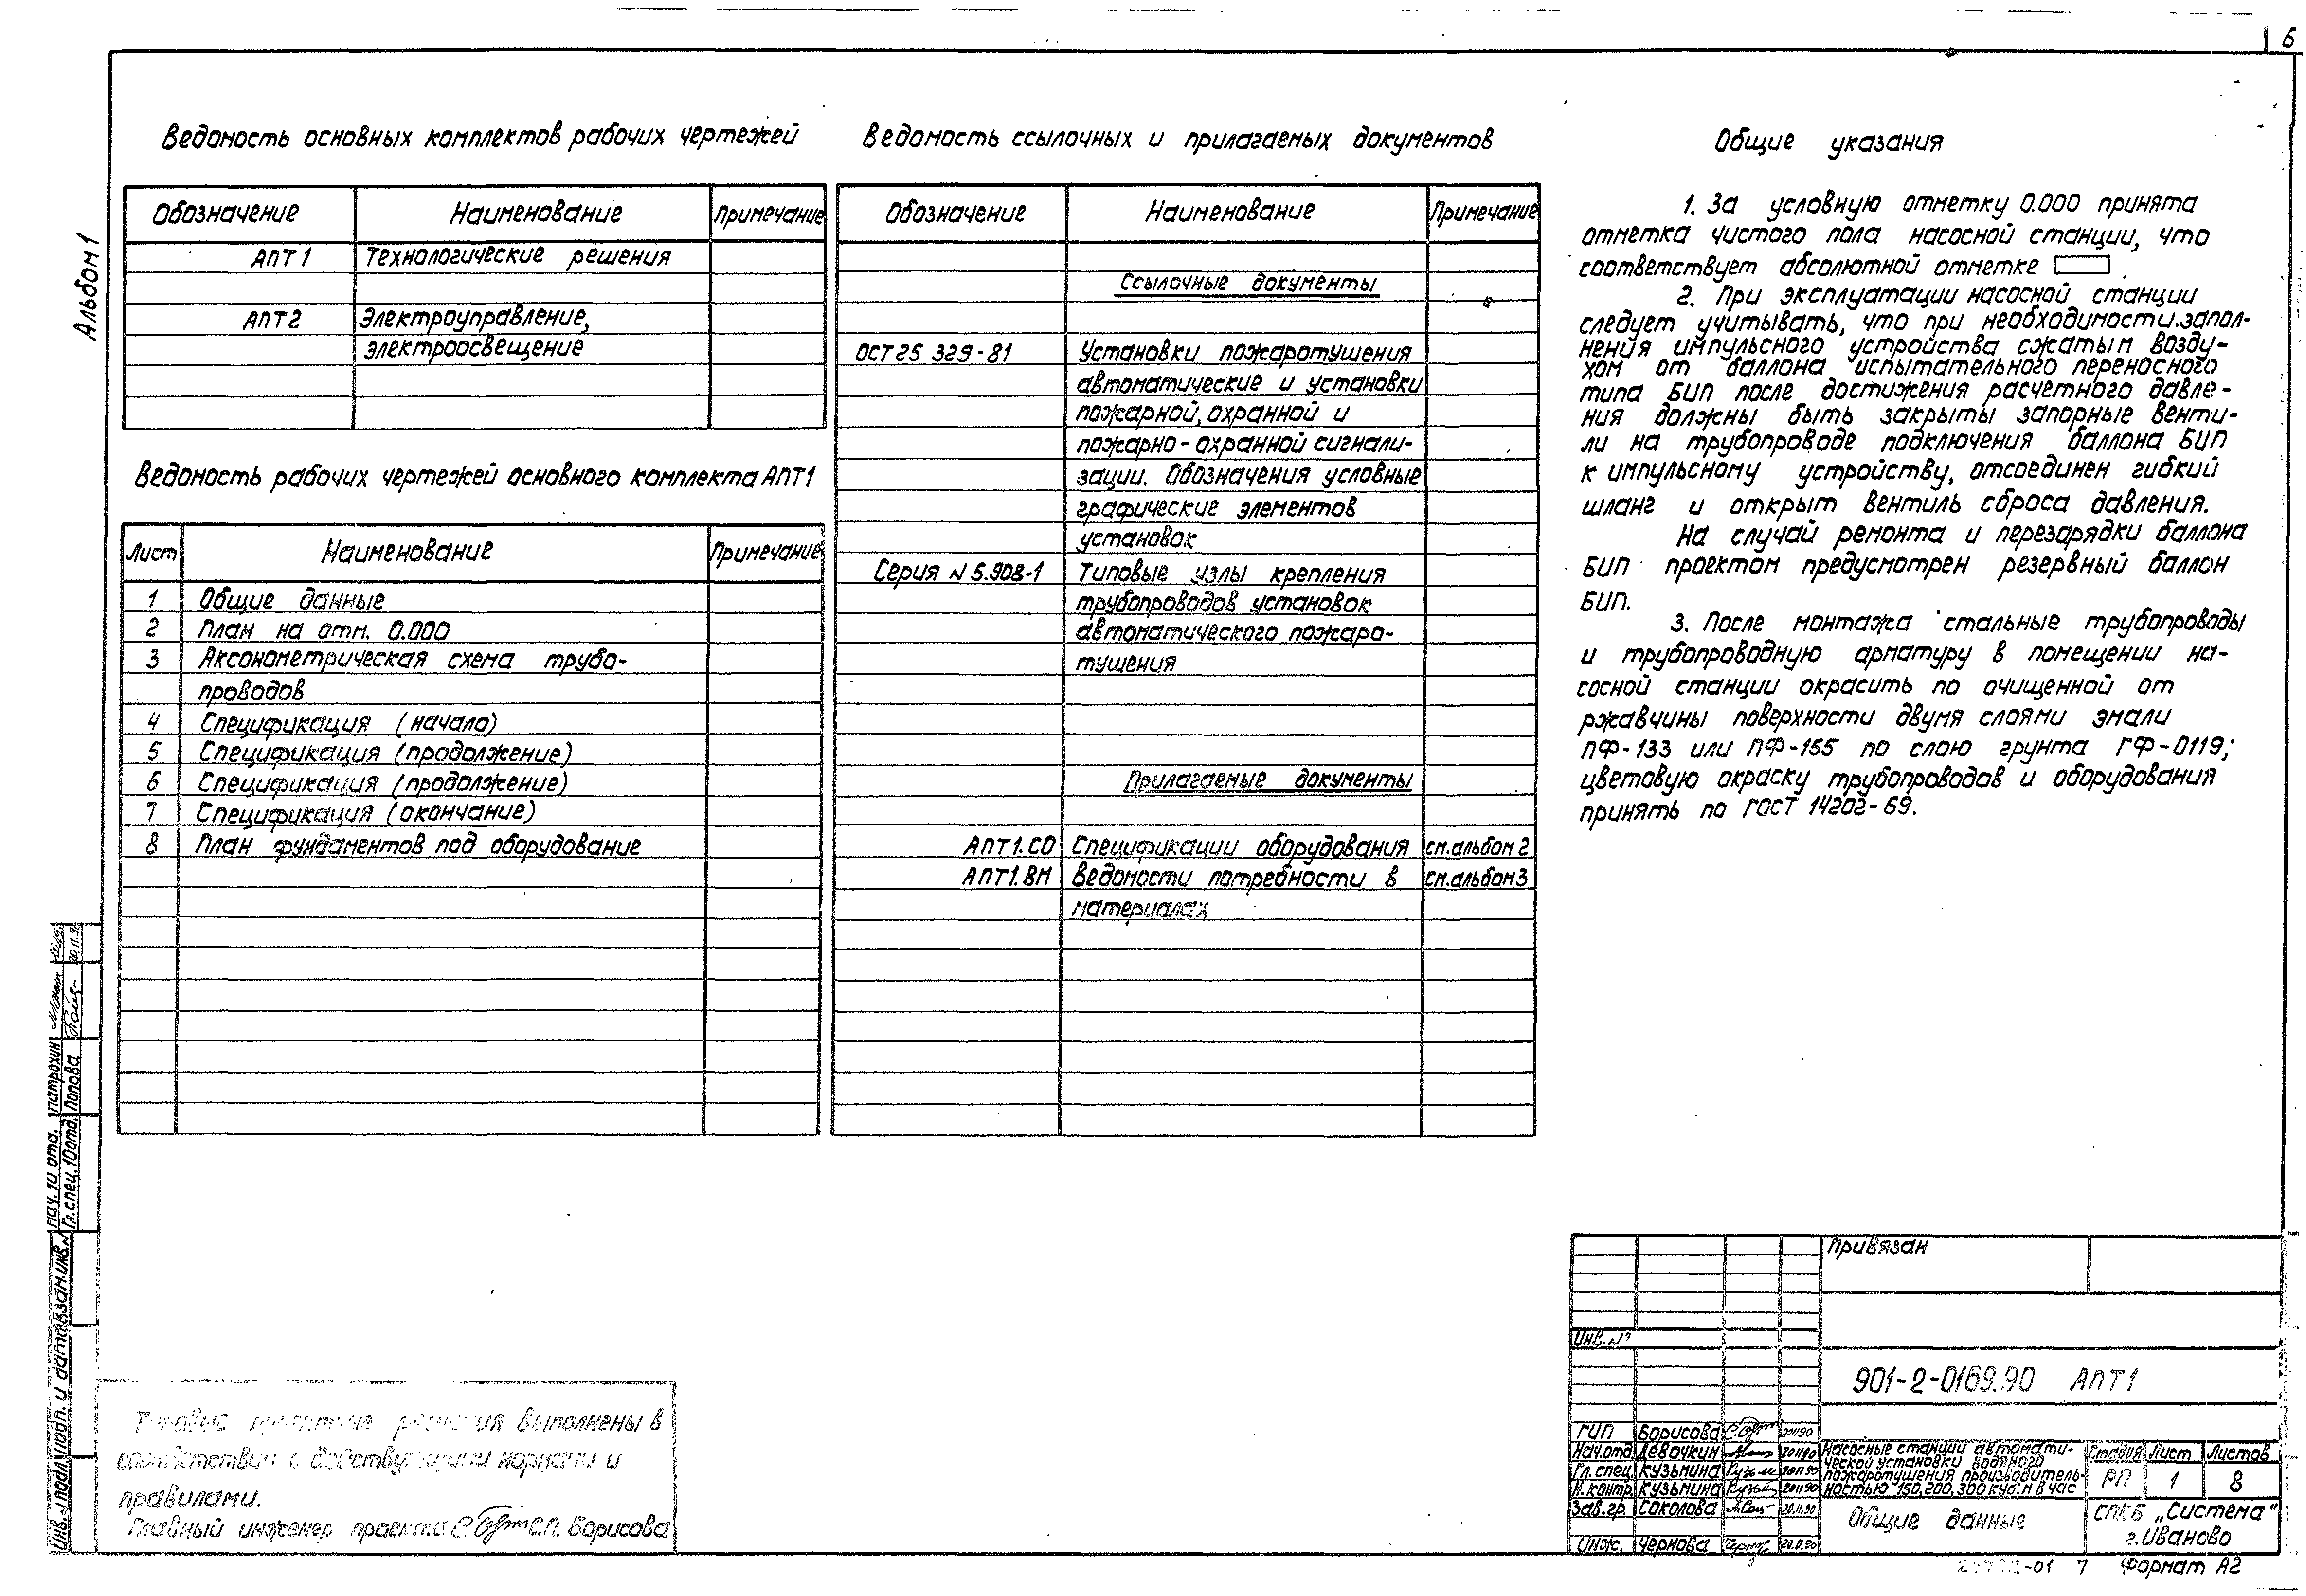 6
Альбом 1
Ведомость основных комплектов рабочих чертежей
Обозначение Наименование Примечание
АПТ1 Технологические решения
АПТ2 Электроуправление,
электроосвещение
Ведомость рабочих чертежей основного комплекта АПТ1
Лист Наименование Примечание
1 Общие данные
2 План на отм. 0.000
3 Аксонометрическая схема трубо-
проводов
4 Спецификация (начало)
5 Спецификация (продолжение)
6 Спецификация (продолжение)
7 Спецификация (окончание)
8 План фундаментов под оборудование
Ведомость ссылочных и прилагаемых документов
Обозначение Наименование Примечание
Ссылочные документы
ОСТ 25 329-81 Установки пожаротушения
автоматические и установки
пожарной, охранной и
пожарно-охранной сигнали-
зации. Обозначения условные
графические элементов
установок
Серия N 5.908-1 Типовые узлы крепления
трубопроводов установок
автоматического пожаро-
тушения
Прилагаемые документы
АПТ1.СО Спецификации оборудования см.альбом 2
АПТ1.ВМ Ведомости потребности в см.альбом 3
материалах
Общие указания
1. За условную отметку 0.000 принята
отметка чистого пола насосной станции, что
соответствует абсолютной отметке .
2. При эксплуатации насосной станции
следует учитывать, что при необходимости запол-
нения импульсного устройства сжатым возду-
хом от баллона испытательного переносного
типа БИП после достижения расчетного давле-
ния должны быть закрыты запорные венти-
ли на трубопроводе подключения баллона БИП
к импульсному устройству, отсоединен гибкий
шланг и открыт вентиль сброса давления.
На случай ремонта и перезарядки баллона
БИП проектом предусмотрен резервный баллон
БИП.
3. После монтажа стальные трубопроводы
и трубопроводную арматуру в помещении на-
сосной станции окрасить по очищенной от
ржавчины поверхности двумя слоями эмали
ПФ-133 или ПФ-155 по слою грунта ГФ-0119;
цветовую окраску трубопроводов и оборудования
принять по ГОСТ 14202-69.
Нач. 10 отд. Патрохин
Гл.спец.10отд. Попова 20.11.90
Инв. № подл. Подп. и дата Взам.инв.№
Типовые проектные решения выполнены в
соответствии с действующими нормами и
правилами.
Главный инженер проекта С.П. Борисова
Привязан
Инв. №
901-2-0169.90 АПТ1
ГИП Борисова 201190
Нач.отд Девочкин 201190
Гл. спец. Кузьмина 201190
Н.контр. Кузьмина 201190
Зав.гр. Соколова 20.11.90
Инж. Чернова 20.11.90
Насосные станции автомати-
ческой установки водяного
пожаротушения производитель-
ностью 150, 200, 300 куб. м в час
Стадия Лист Листов
РП 1 8
Общие данные
СПКБ „Система"
г.Иваново
-01 7 Формат А2